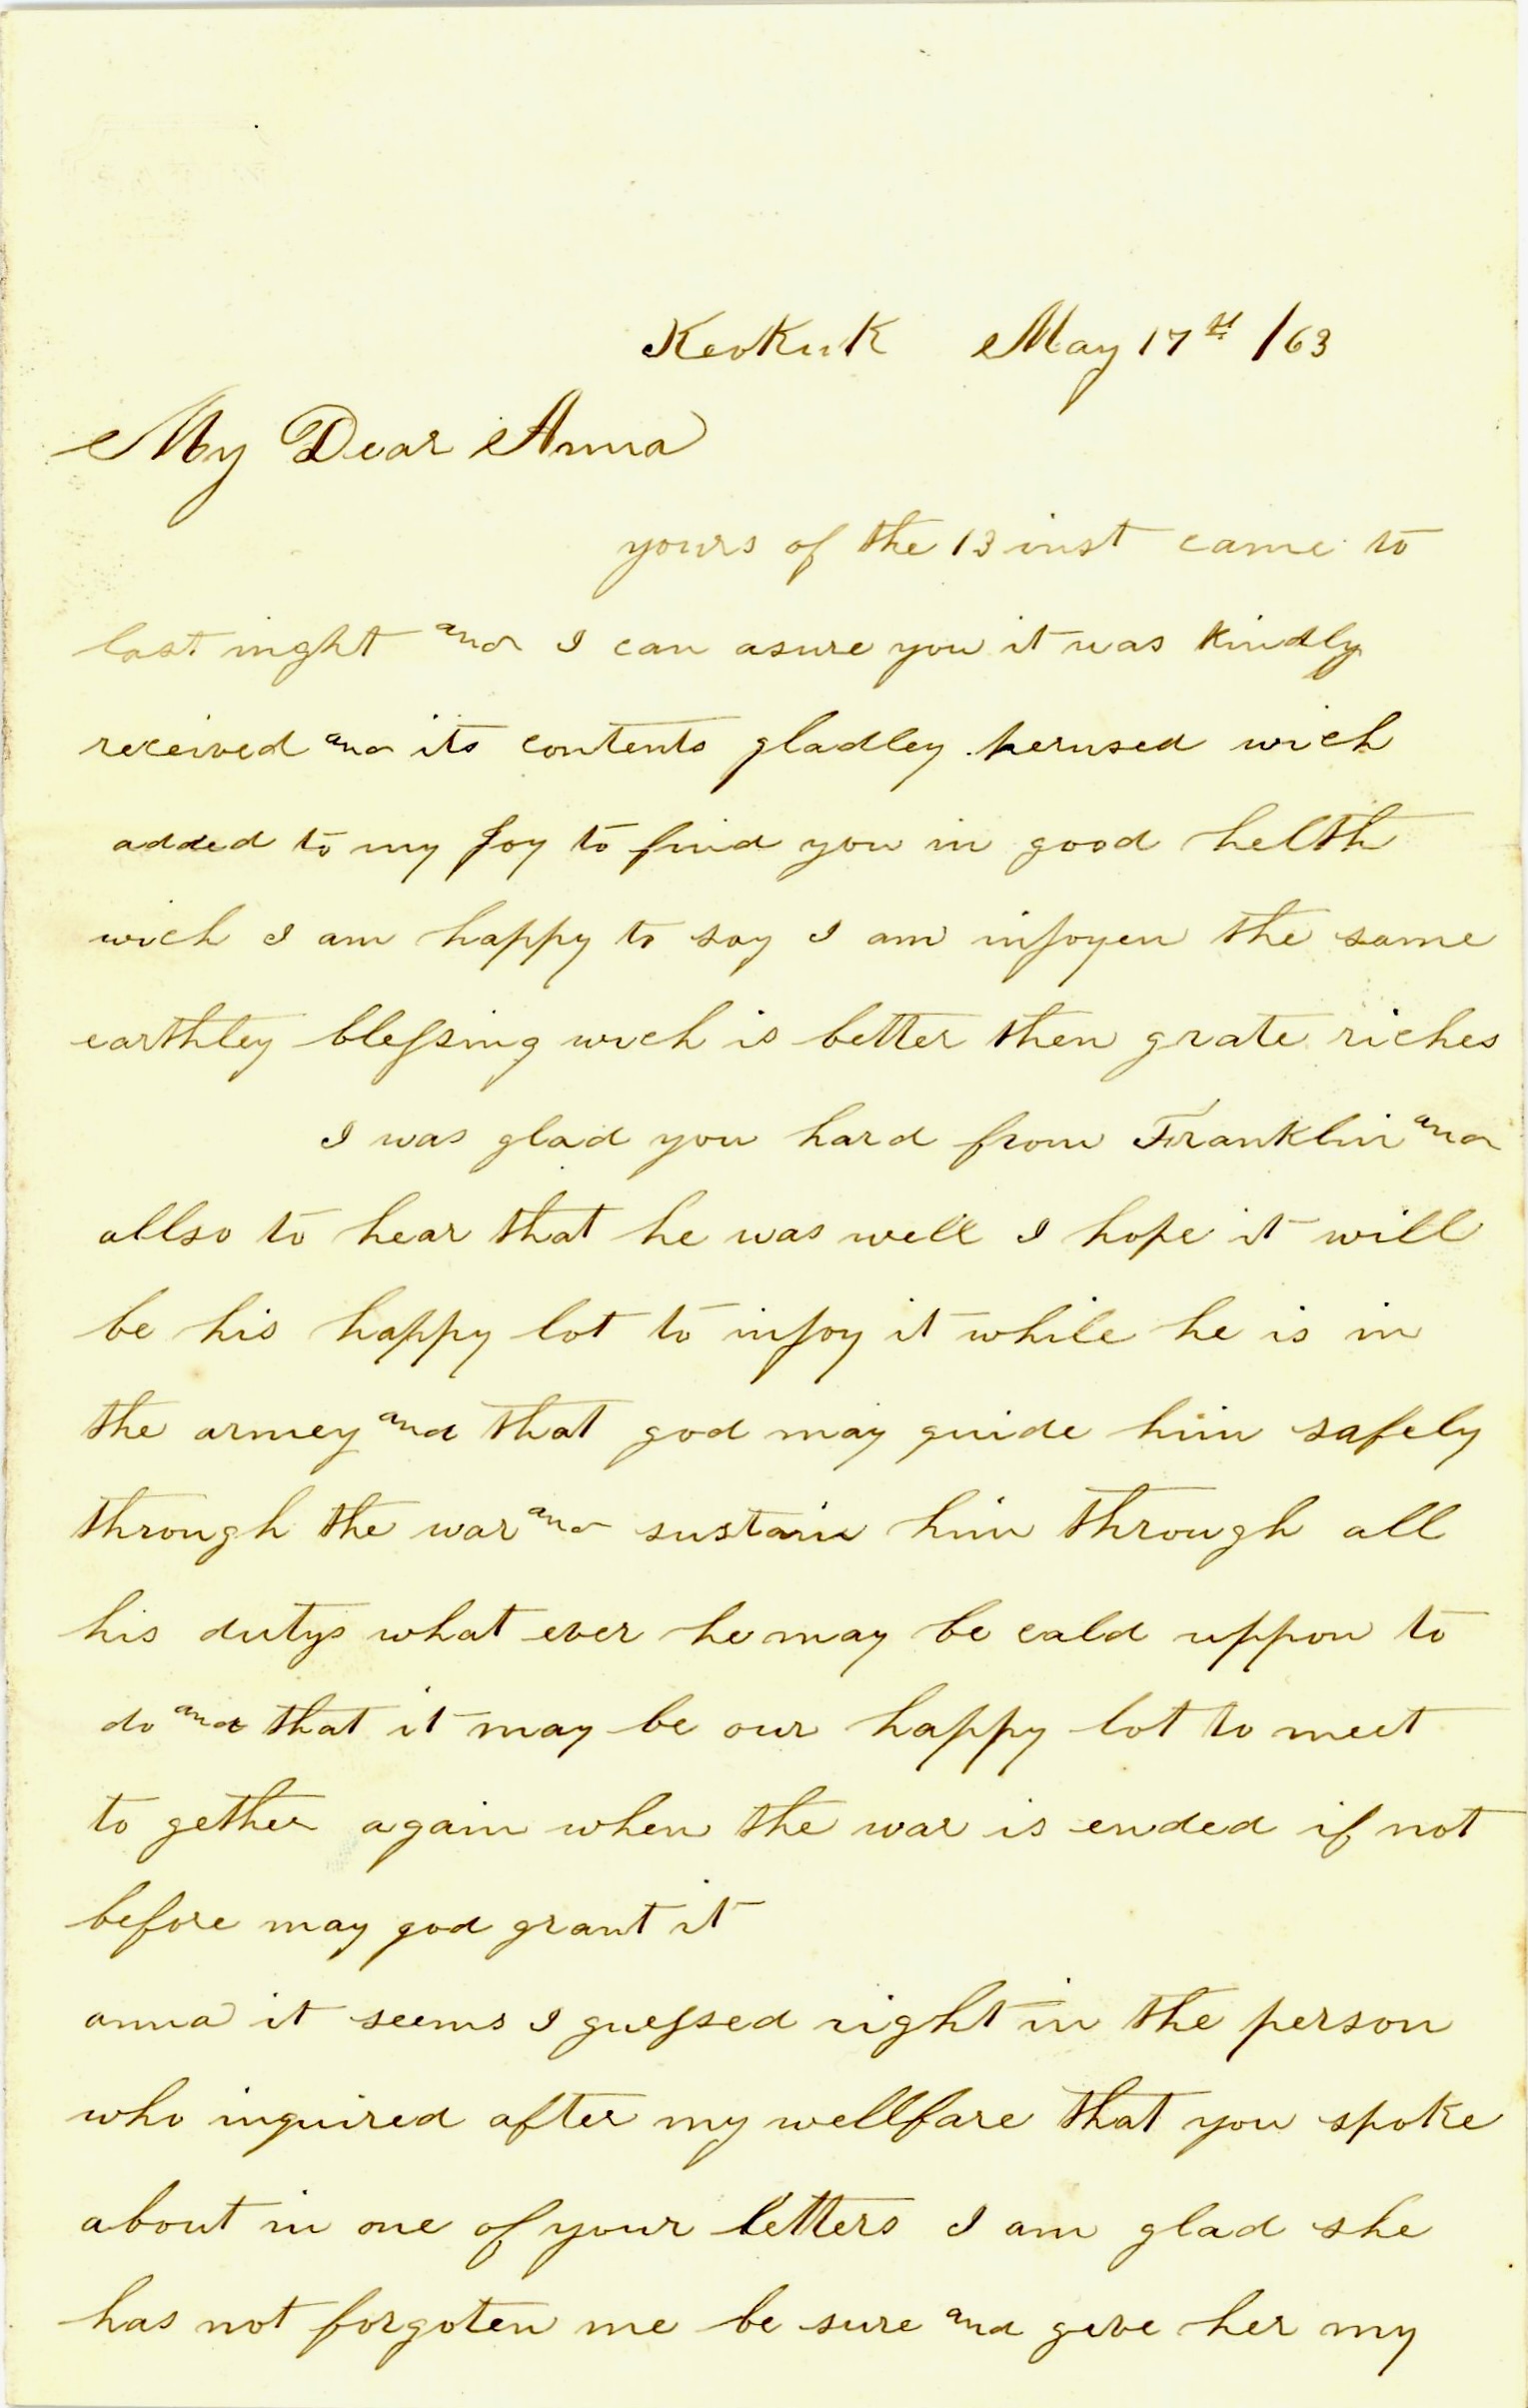 Keokuk May 17th /63
My Dear Anna
yours of the 13 inst came to
last night and I can asure you it was kindly
received and its contents gladley perused wich
added to my joy to find you in good helth
wich I am happy to say I am injoyen the same
earthley blessing wich is better then grate riches
I was glad you hard from Franklin and
allso to hear that he was well I hope it will
be his happy lot to injoy it while he is in
the armey and that god may guide him safely
through the war and sustain him through all
his dutys what ever he may be cald uppon to
do and that it may be our happy lot to meet
to gether again when the war is ended if not
before may god grant it
anna it seems I guessed right in the person
who inquired after my wellfare that you spoke
about in one of your letters I am glad she
has not forgoten me be sure and geve her my